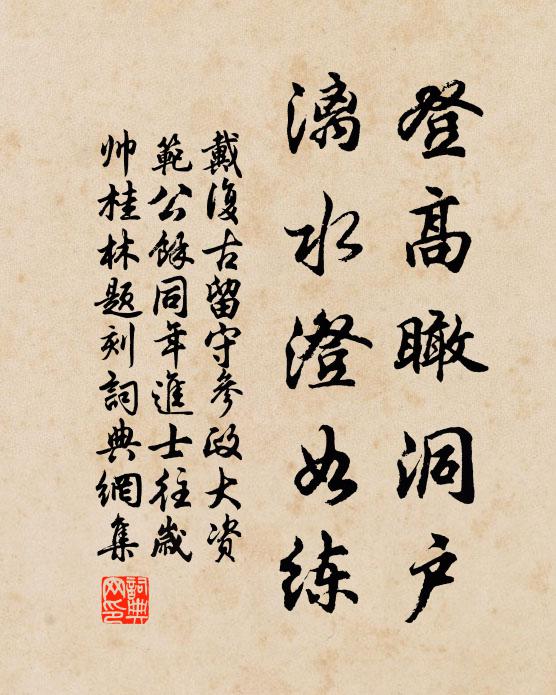 登高瞰洞户
漓水澄如练
戴復古留守參政大资
範公餘同年進士往歲
帅桂林题刻詞典網集
詞典網印